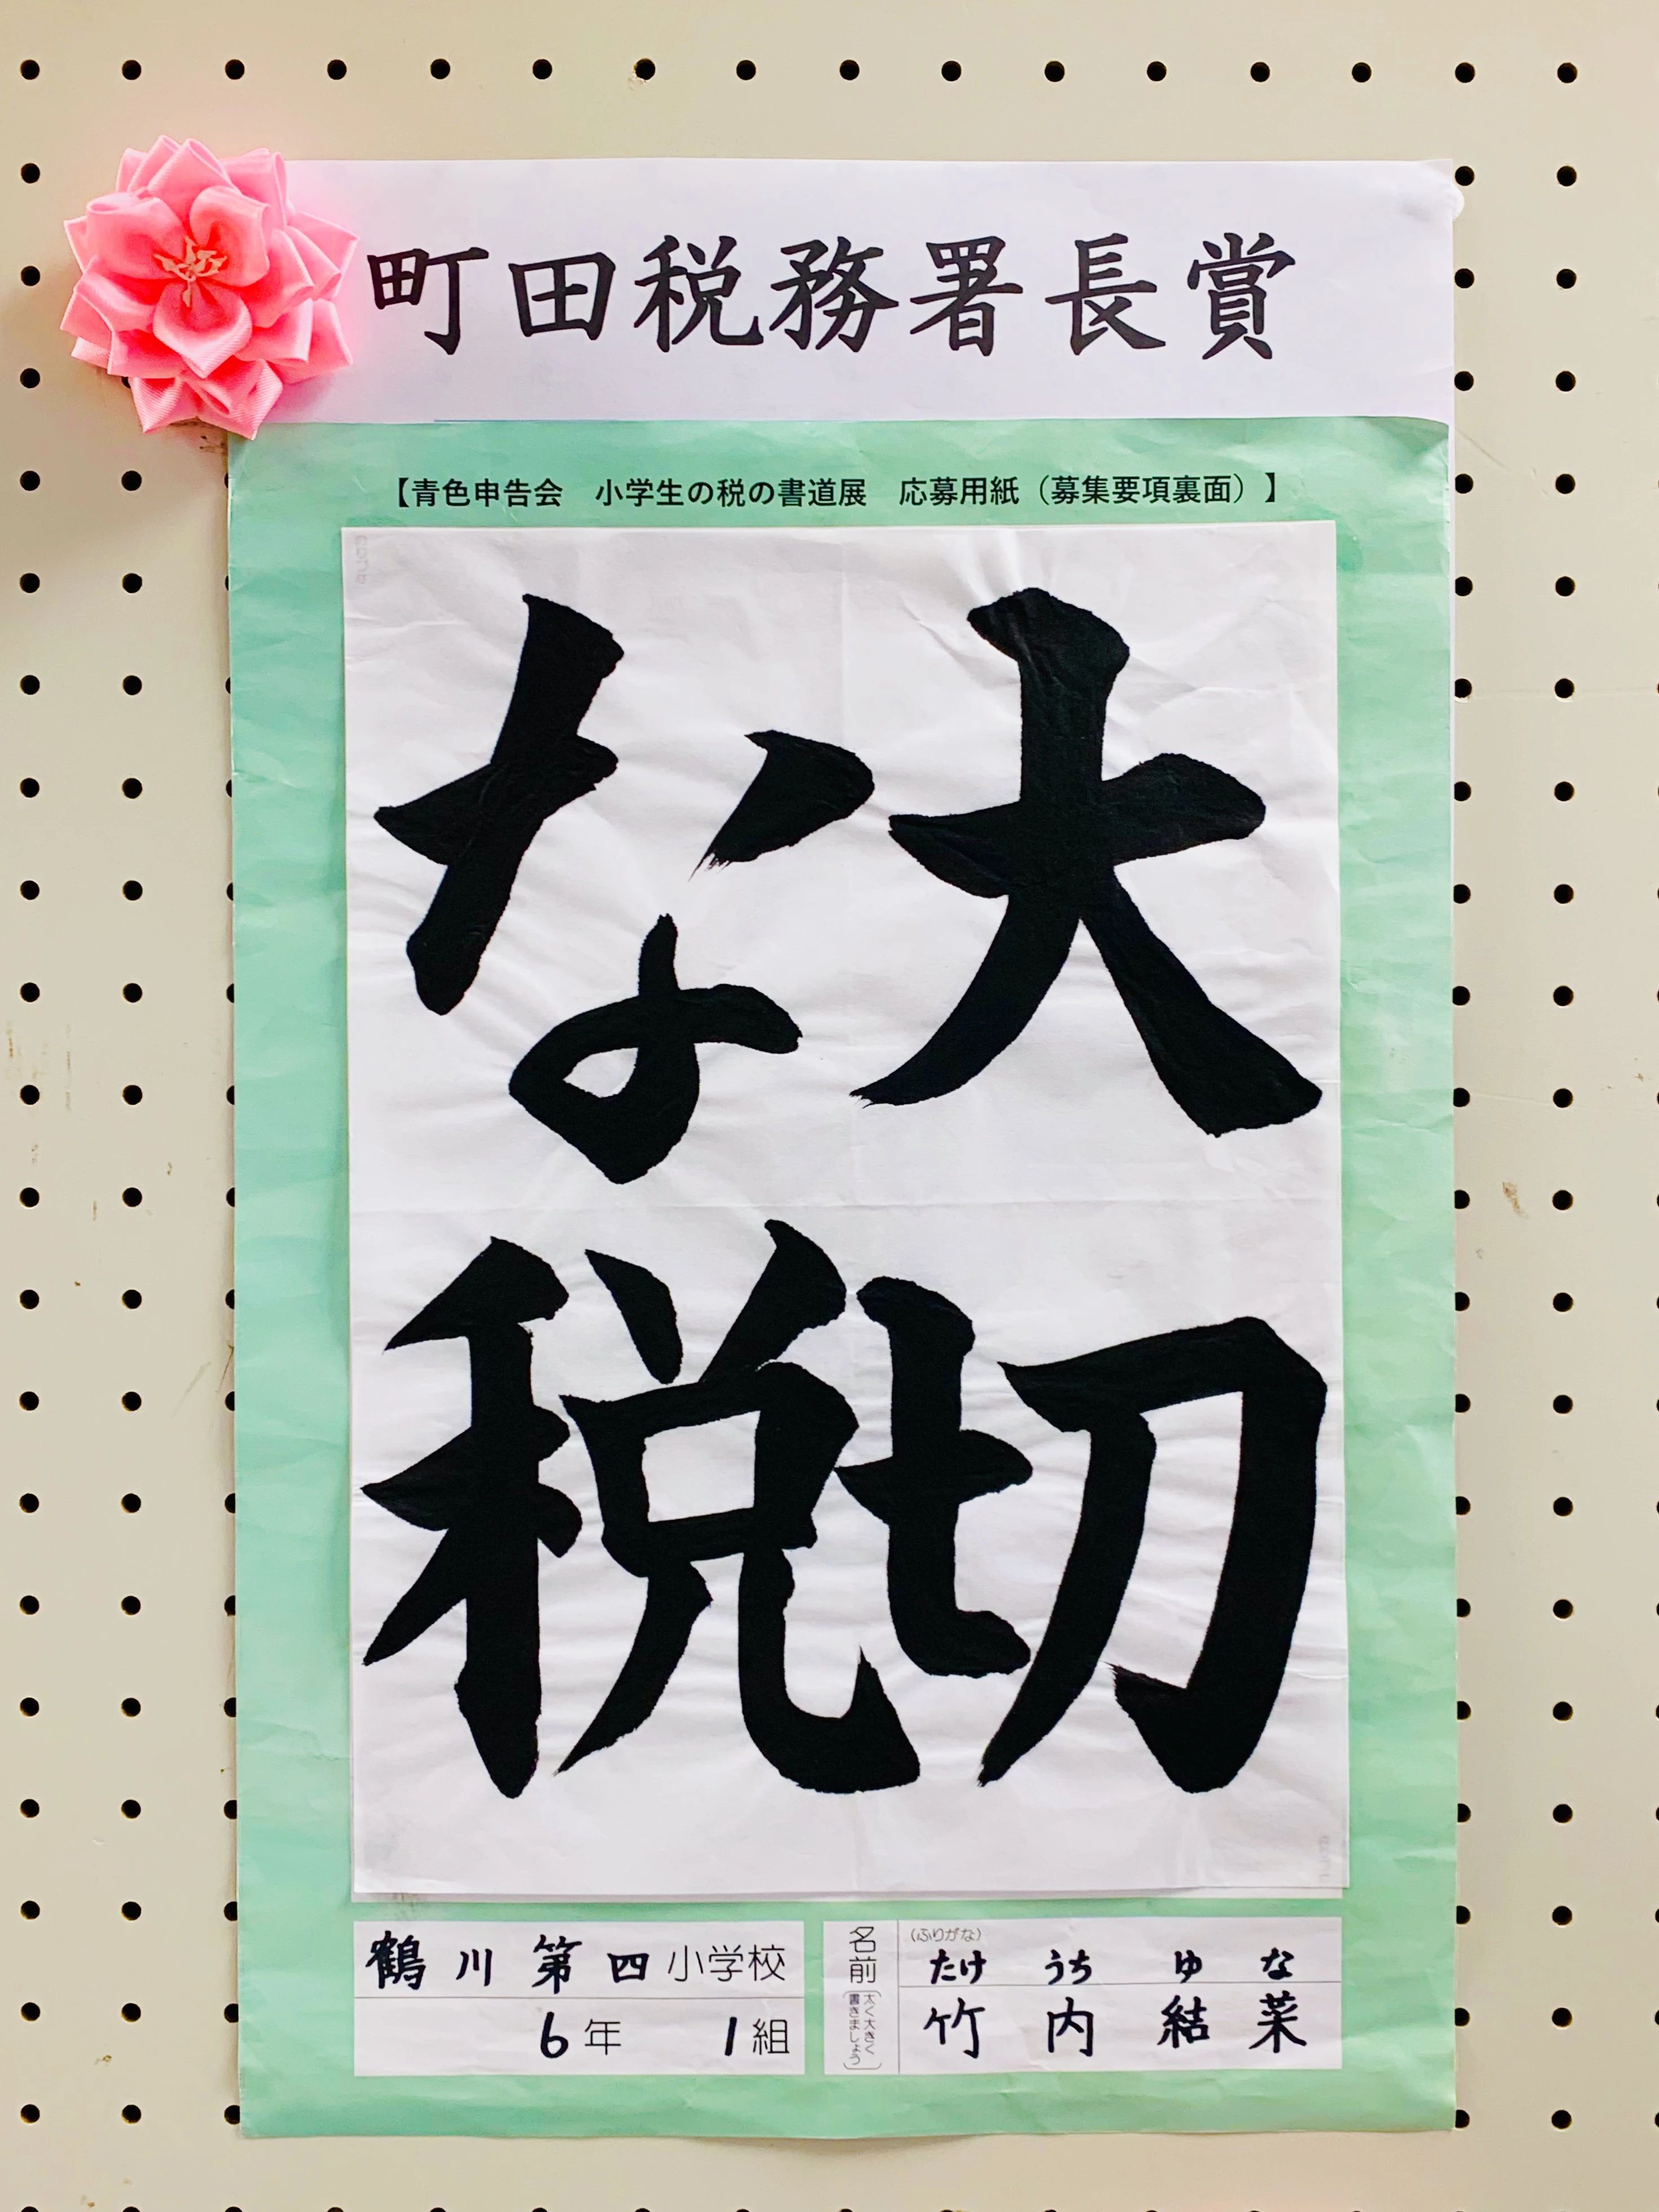 町田税務署長賞
【青色申告会 小学生の税の書道展 応募用紙（募集要項裏面）】
大切
な税
鶴川第四小学校
6年 1組
名前
太く大きく
書きましょう
(ふりがな)
たけ うち ゆ な
竹内結菜